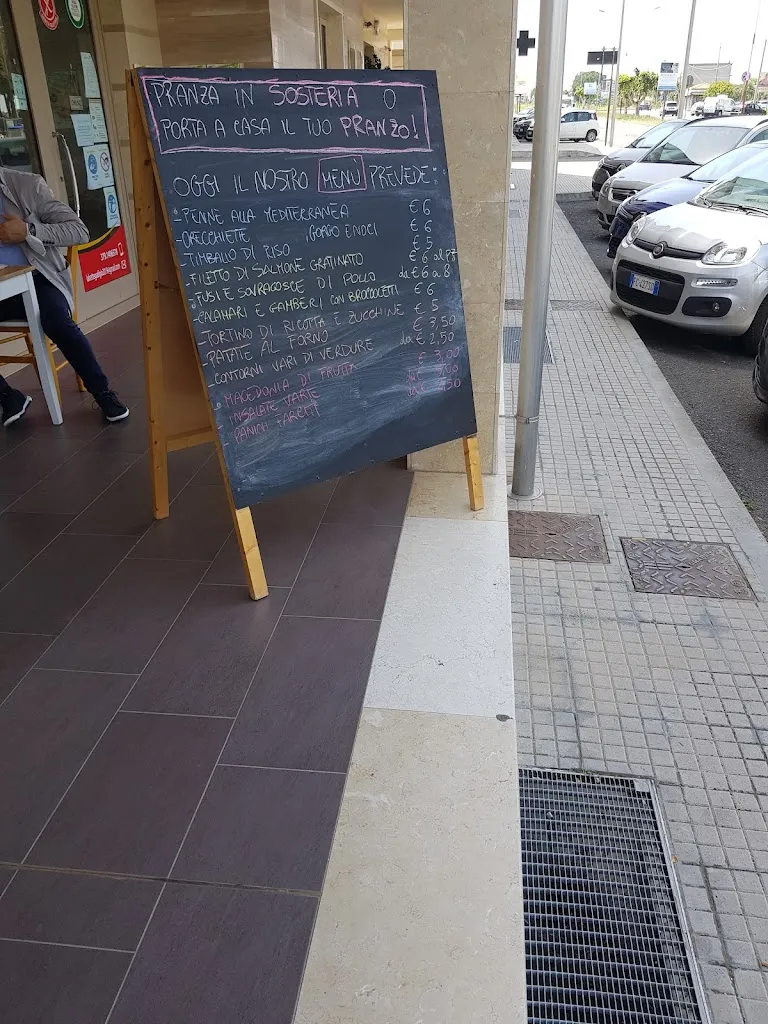 PRANZA IN SOSTERIA O
PORTA A CASA IL TUO PRANZO!
OGGI IL NOSTRO MENU PREVEDE:
- PENNE ALLA MEDITERRANEA € 6
- ORECCHIETTE GORGO E NOCI € 6
- TIMBALLO DI RISO € 5
- FILETTO DI SALMONE GRATINATO € 6 al pz
- FUSI E SOVRACOSCE DI POLLO da € 6 a 8
- CALAMARI E GAMBERI CON BROCCOLETTI € 6
- TORTINO DI RICOTTA E ZUCCHINE € 5
- PATATE AL FORNO € 3,50
- CONTORNI VARI DI VERDURE da € 2,50
- MACEDONIA DI FRUTTA € 3,00
- INSALATE VARIE
- PANINI FARCITI